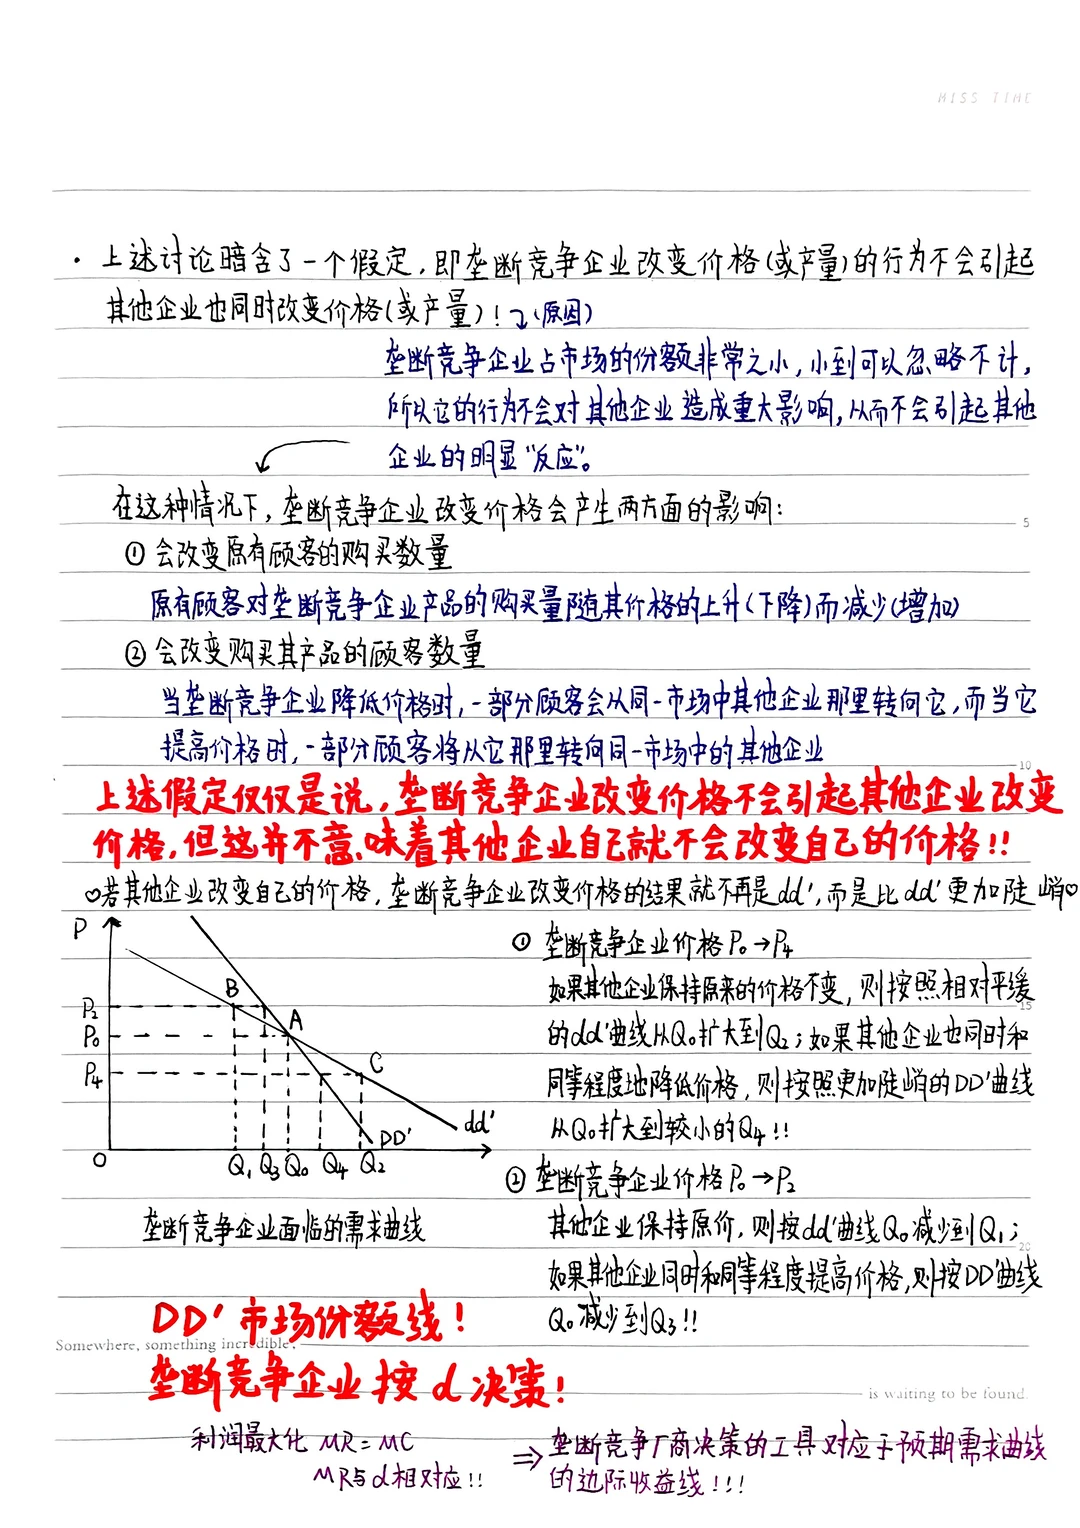 MISS TIME
· 上述讨论暗含了一个假定,即垄断竞争企业改变价格(或产量)的行为不会引起
其他企业也同时改变价格(或产量)!(原因)
垄断竞争企业占市场的份额非常之小,小到可以忽略不计,
所以它的行为不会对其他企业造成重大影响,从而不会引起其他
企业的明显"反应"。
在这种情况下,垄断竞争企业改变价格会产生两方面的影响:
① 会改变原有顾客的购买数量
原有顾客对垄断竞争企业产品的购买量随其价格的上升(下降)而减少(增加)
② 会改变购买其产品的顾客数量
当垄断竞争企业降低价格时,一部分顾客会从同一市场中其他企业那里转向它,而当它
提高价格时,一部分顾客将从它那里转向同一市场中的其他企业
上述假定仅仅是说,垄断竞争企业改变价格不会引起其他企业改变
价格,但这并不意味着其他企业自己就不会改变自己的价格!!
♡若其他企业改变自己的价格,垄断竞争企业改变价格的结果就不再是dd',而是比dd'更加陡峭♡
P
B
A
C
P₂
P₀
P₄
dd'
DD'
O
Q₁ Q₃ Q₀ Q₄ Q₂
垄断竞争企业面临的需求曲线
① 垄断竞争企业价格P₀→P₄
如果其他企业保持原来的价格不变,则按照相对平缓
的dd'曲线从Q₀扩大到Q₂;如果其他企业也同时和
同等程度地降低价格,则按照更加陡峭的DD'曲线
从Q₀扩大到较小的Q₄!!
② 垄断竞争企业价格P₀→P₂
其他企业保持原价,则按dd'曲线Q₀减少到Q₁;
如果其他企业同时和同等程度提高价格,则按DD'曲线
Q₀减少到Q₃!!
5
10
15
20
DD'市场份额线!
Somewhere, something incredible,
垄断竞争企业按d决策!
is waiting to be found.
利润最大化 MR=MC
MR与d相对应!!
⇒ 垄断竞争厂商决策的工具对应于预期需求曲线
的边际收益线!!!